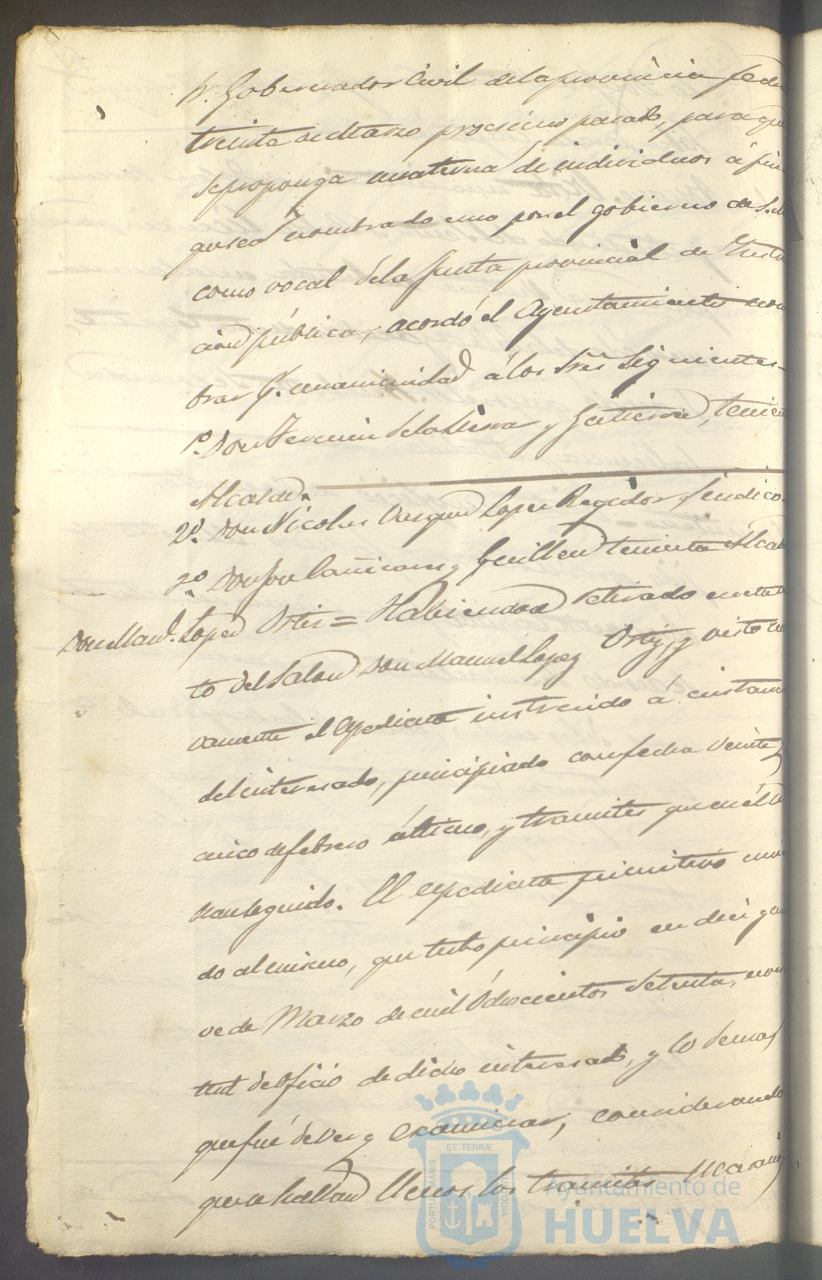 Sr. Gobernador Civil de la provincia fecha
treinta de Marzo procsimo pasado, para que
se proponga una terna de individuos á fin
que sea nombrado uno por el gobierno de S.M.
como vocal de la Junta provincial de Instruc
cion pública, acordó el Ayuntamiento nom
brar p.r unanimidad á los Sres. siguientes-
1º. Don Fermin de la Sierra y Gutierrez, teniente
Alcalde.
2º. Don Nicolas Vazquez Lopez Regidor Sindico
3º Don José Cañizares y Guillen teniente Alcal
Don Man.l Lopez Ortiz = Habiendose retirado en este
to del Salon Don Manuel Lopez Ortiz, y visto
vamente el espediente instruido á instan
del interesado, principiado con fecha veinte
cinco de febrero último, y tramites que en él
han seguido. El espediente primitivo uni
do al mismo, que tubo principio en diez y nue
ve de Marzo de mil ochocientos setenta,
tud de oficio de dicho interesado, y lo demas
que fué de ver y examinar, considerando
que se hallan llenos los tramites
ET TERRÆ
PORTUS MARIS
CUSTODIA
Ayuntamiento de
HUELVA